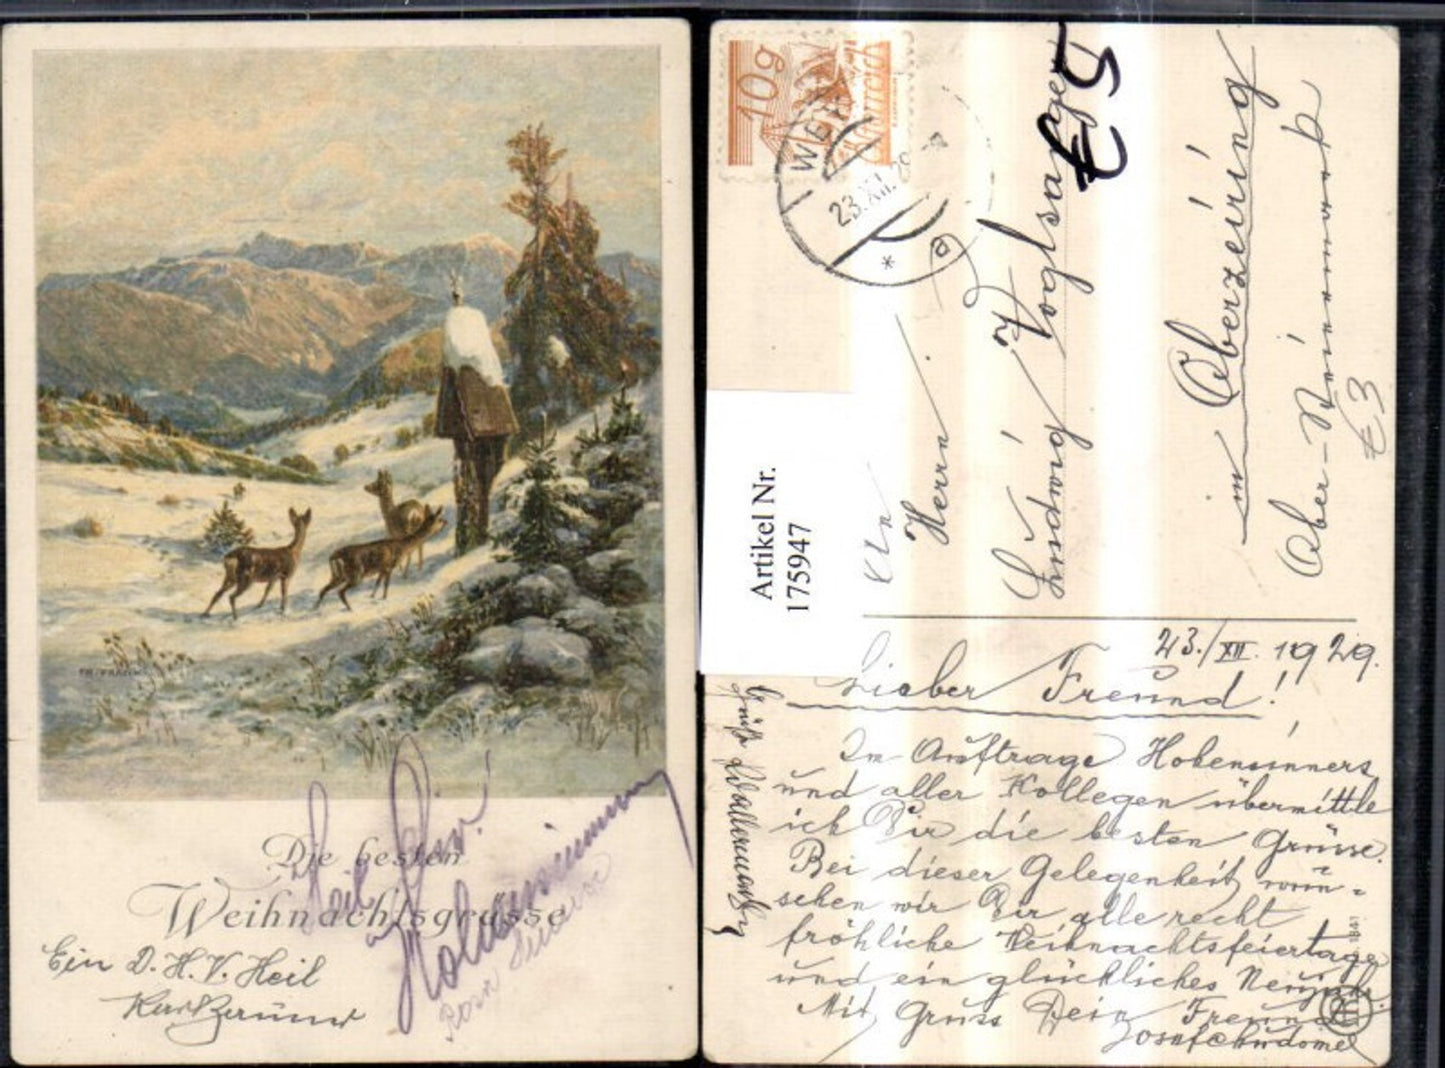 Die besten
Weihnachtsgrüsse
Heil Dir!
Hohensinner
Ein D. H. V. Heil
Karl
10g
Österreich
WEY
23.XII.29
* a
Artikel Nr.
175947
Herrn
Ludwig Voglsager
in Oberzeiring
Ober-Steiermark
€3
23./XII. 1929.
Lieber Freund!
Im Auftrage Hohensinners
und aller Kollegen übermittle
ich Dir die besten Grüsse.
Bei dieser Gelegenheit wün-
schen wir Dir alle recht
fröhliche Weihnachtsfeiertage
und ein glückliches Neujahr.
Mit Gruss Dein Freund
Josef
1841